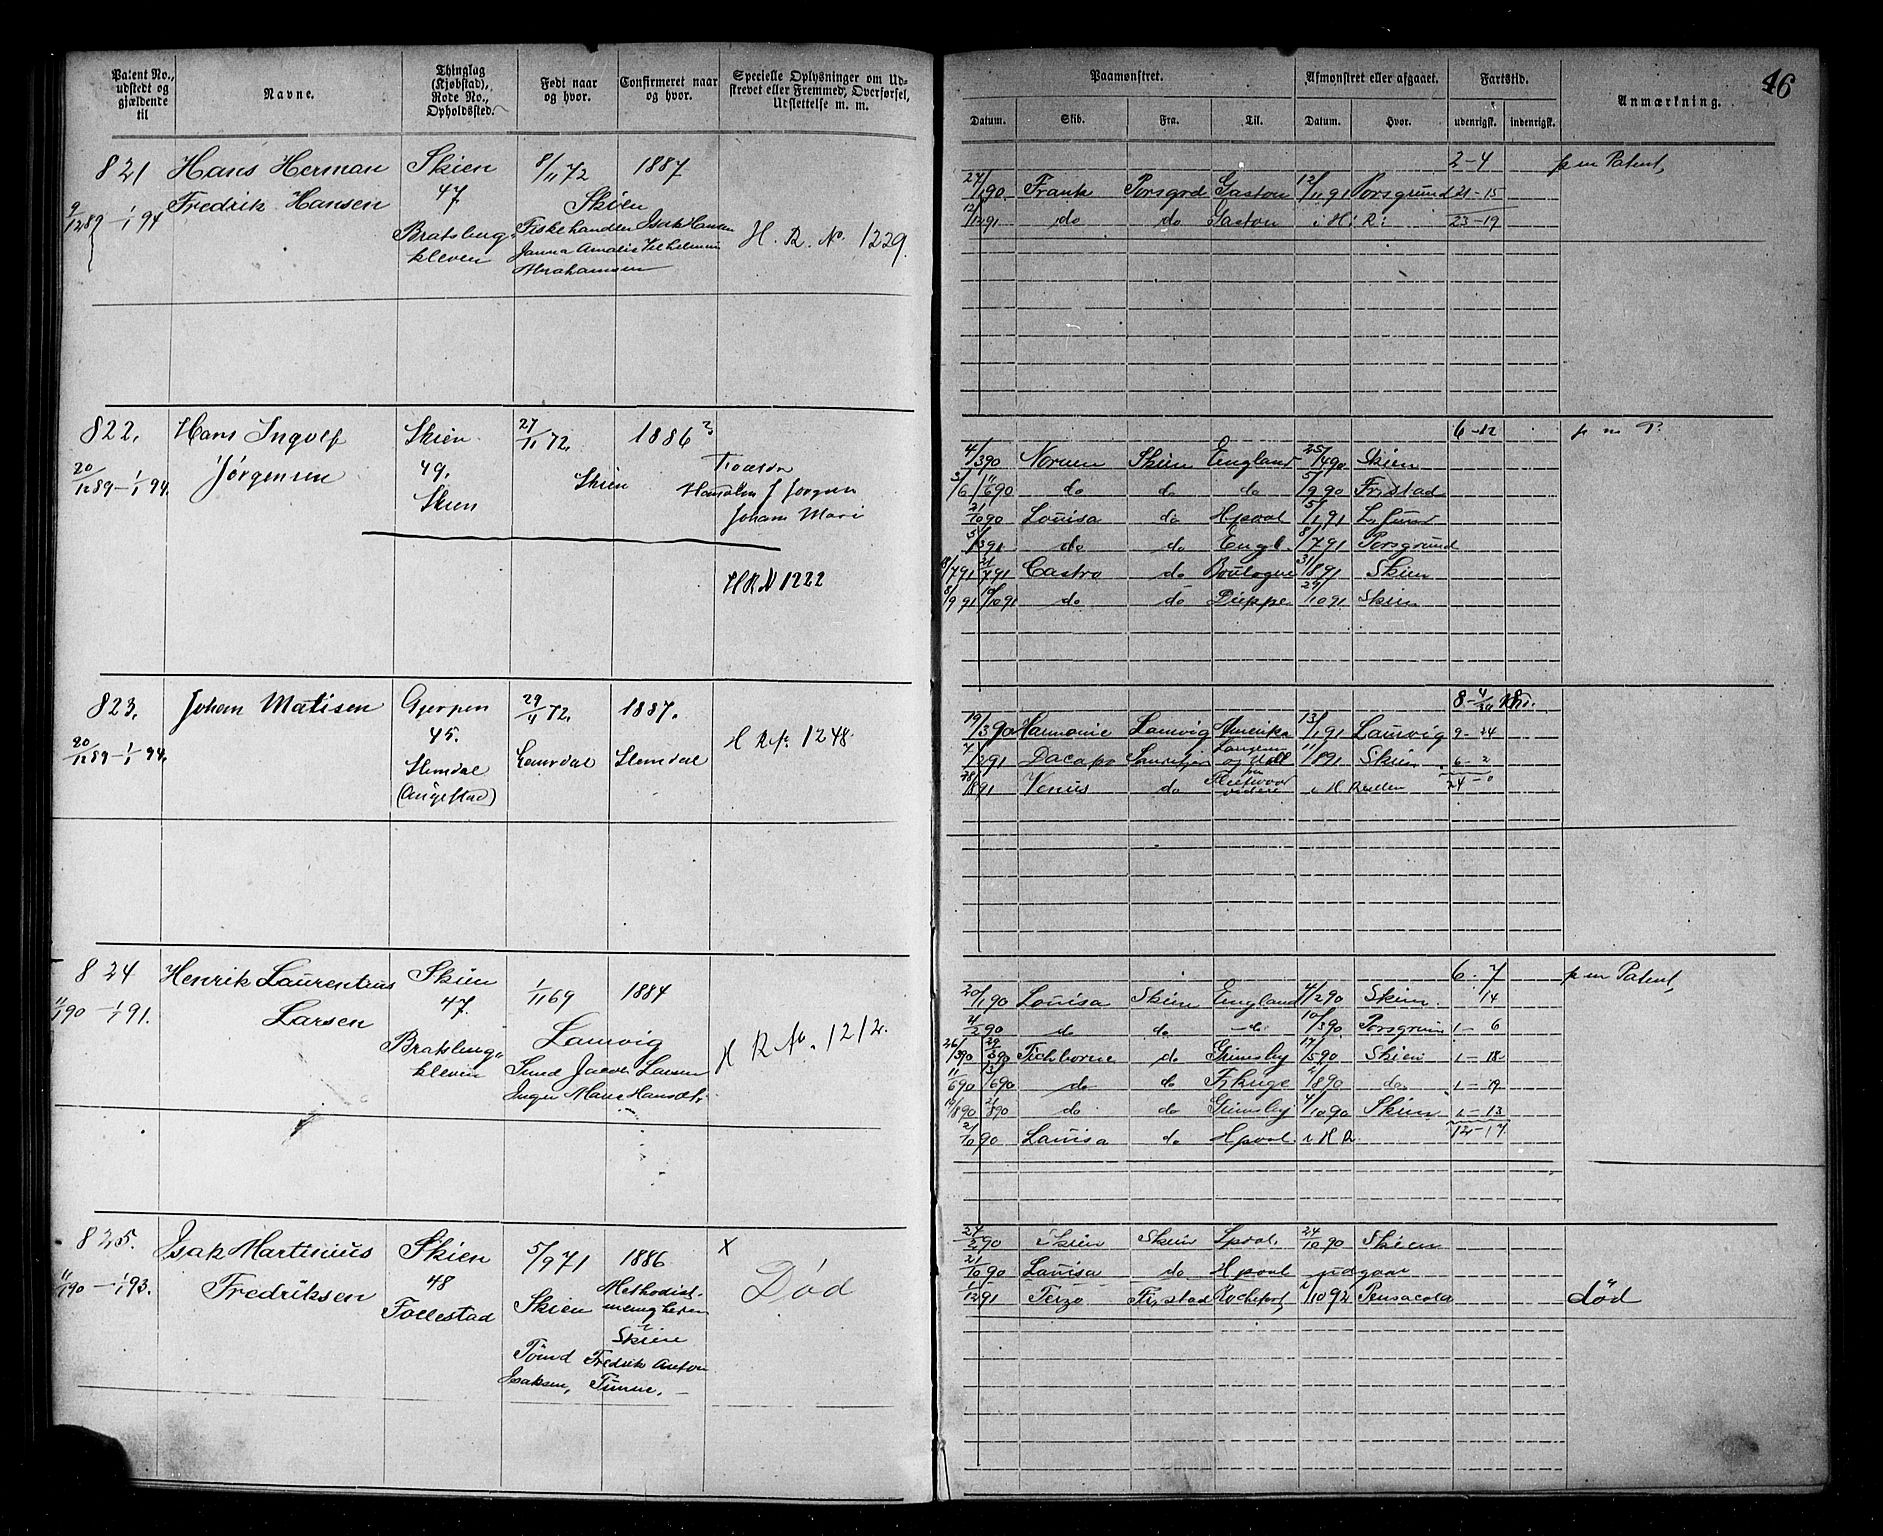 Patent No., udstedt og gjældende til
Navne.
Thinglag (Kjøbstad), Rode No., Opholdssted.
Født naar og hvor.
Confirmeret naar og hvor.
Specielle Oplysninger om Udskrevet eller Fremmed, Overførsel, Udslettelse m. m.
Paamønstret.
Afmønstret eller afgaaet.
Fartstid.
Anmærkning.
46
Datum. Skib. Fra. Til. Datum. Hvor. udenrigst. indenrigst.
821 Hans Herman Skien 8/11 72 1887
9/12 89 – 1/1 94 Fredrik Hansen 47 Skien
Bratsberg- Fiskehandler Isak Hansen
kleven Janna Amalie Vilhelmine
Abrahamsen
H. R. No. 1229.
2-4 p m Patent,
27/1 90. Frank Porsgrd Gaston 12/11 91 Porsgrund 21-15
12/12 91 do do Gaston i H: R: 23-19
822. Hans Ingolf Skien 27/11 72. 1886
20/12 89 – 1/1 94. Jørgensen 49. Skien
Skien
Johans Mari
H R N 1222
6-12 p m P.
4/3 90 Nornen Skien England 25/4 90 Skien
3/6 11/6 90 do do do 5/9 90 Frstad
21/10 90 Louisa do Hpool 5/1 91
5/3 91 do do Engl. 8/7 91 Porsgrund
18/7 91 21/7 91 Castro do Boulogne 31/8 91 Skien
8/9 91 10/10 91 do do Dieppe 29/10 91 Skien
823. Johan Matisen Gjerpen 29/11 72. 1887.
20/12 89 – 1/1 94. 45. Slemdal
Slemdal
(Augestad)
H Rp. 1248
19/3 90 Harmonie Laurvig Amerika 13/1 91 Laurvig 9-24
7/2 91 Dacapo 11/8 91 Skien 6-2
Venus do i H Rullen 24-0
824 Henrik Laurentius Skien 1/11 69 1884
11/1 90 – 1/1 91. Larsen 47. Laurvig
Bratsberg- Smed Jacob Larsen
kleven Inger Marie Hansdt.
H R No. 1212.
6. 7 p m Patent,
20/1 90 Louisa Skien England 4/2 90 Skien. 14
21/2 90 do do do 10/3 90 Porsgrun 1-6
26/3 90 29/3 90 Tichborne do Grimsby 17/5 90 Skien 1-18
11/6 90 13/6 90 do do 2/8 90 do. 1-19
do do Grimsby 4/10 90 Skien 1-13
21/10 90 Louisa do Hpool i H R. 12-17
825. Isak Martinius Skien 5/9 71 1886 x
11/1 90 – 1/1 93. Fredriksen 48 Skien Methodist-
Follestad menigheden
i Skien
Tømd Fredrik Anton
Isaksen,
Død
24/2 90 Skien Skien Lpool. 24/10 90 Skien
21/10 90 Louisa do Hpool udgaar
1/12 91 Terzo Fr.stad Rochefort 1/10 92 Pensacola død